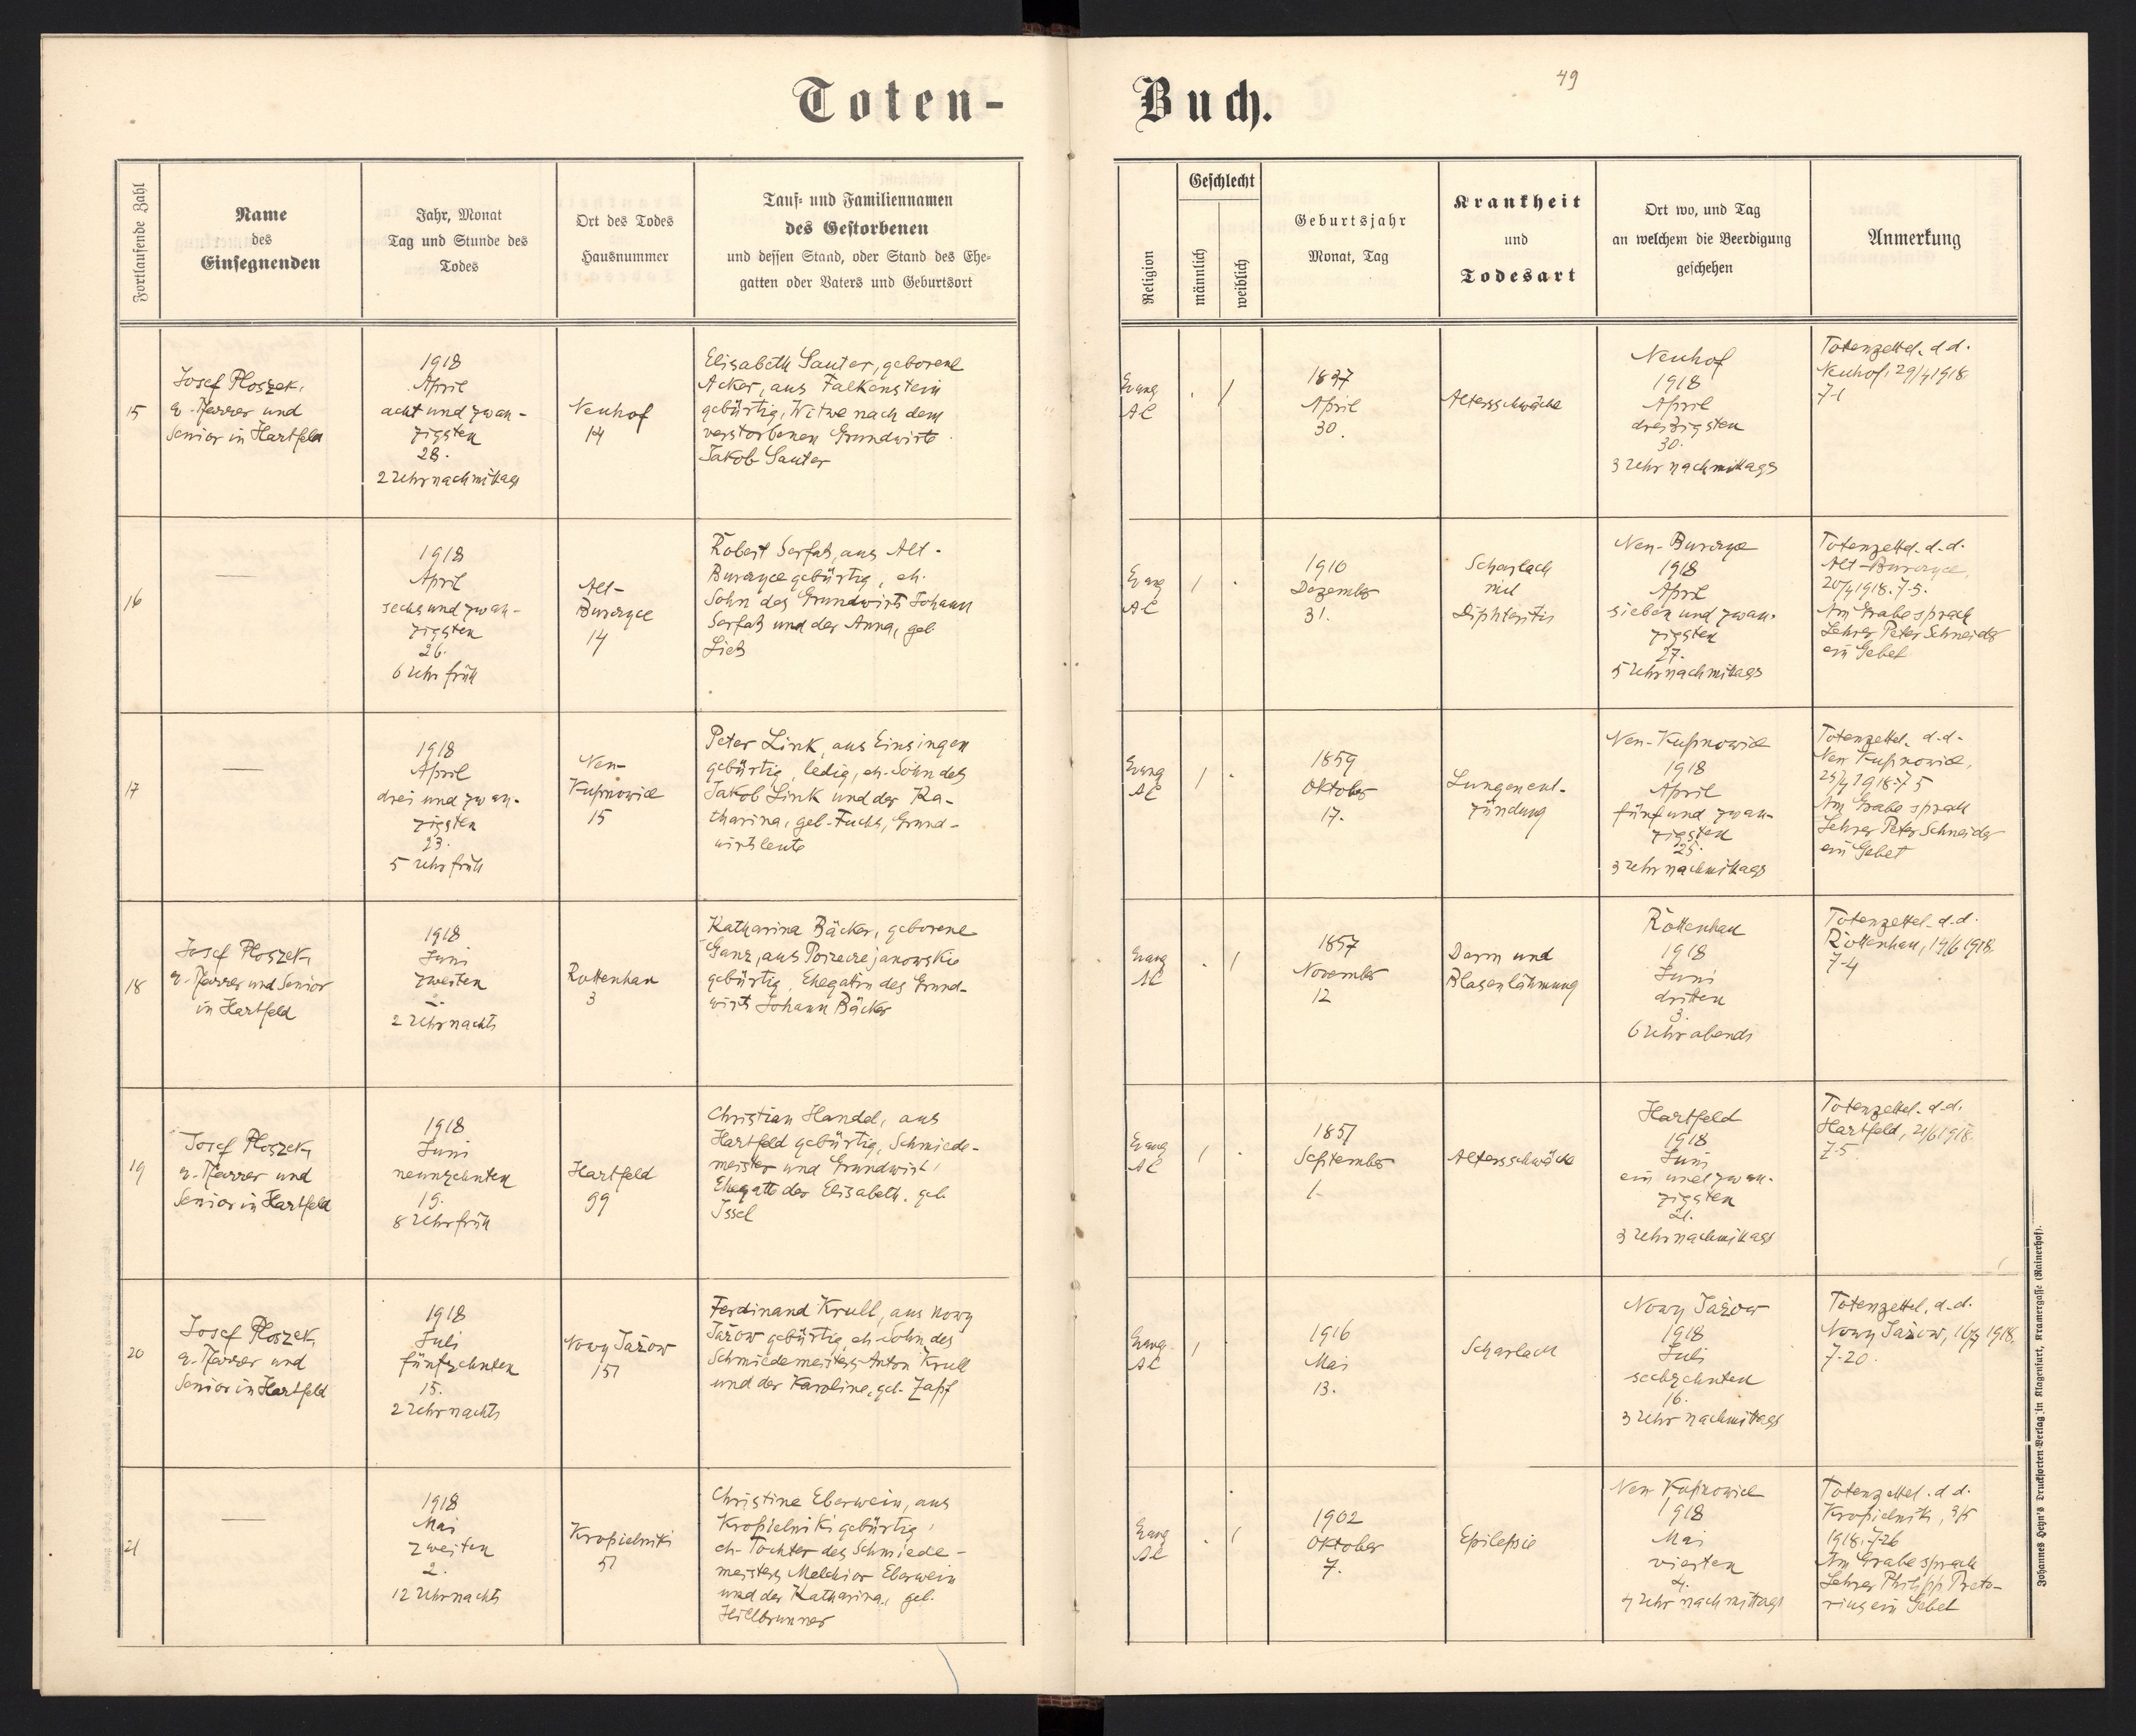 49
Toten-
Buch.
Fortlaufende Zahl
Name
des
Einsegnenden
Jahr, Monat
Tag und Stunde des
Todes
Ort des Todes
Hausnummer
Tauf- und Familiennamen
des Gestorbenen
und dessen Stand, oder Stand des Ehe-
gatten oder Vaters und Geburtsort
Religion
Geschlecht
männlich
weiblich
Geburtsjahr
Monat, Tag
Krankheit
und
Todesart
Ort wo, und Tag
an welchem die Beerdigung
geschehen
Anmerkung
15
Josef Ploszek,
ev. Pfarrer und
Senior in Hartfeld
1918
April
acht und zwan-
zigsten
28.
2 Uhr nachmittags
Neuhof
14
Elisabeth Sauter, geborene
Acker, aus Falkenstein
gebürtig, Witwe nach dem
verstorbenen Grundwirte
Jakob Sauter
Evang
AC
. /
April
30.
Altersschwäche
Neuhof
1918
April
dreißigsten
30.
3 Uhr nachmittags
Totenzettel d.d.
Neuhof, 29/4 1918
7-1
16
—
1918
April
sechs und zwan-
zigsten
26.
6 Uhr früh
Alt-
Burczyce
14
Robert Serfas, aus Alt-
Burczyce gebürtig, eh.
Sohn des Grundwirts Johann
Serfas und der Anna, geb.
Evang
AC
/ .
1916
Dezember
31.
Scharlach
mit
Diphteritis
Neu-Burczyce
1918
April
sieben und zwan-
zigsten
27.
5 Uhr nachmittags
Totenzettel d.d.
Alt-Burczyce,
20/4 1918. 7-5.
Am Grabe sprach
Lehrer Peter Schneider
ein Gebet
17
—
1918
April
drei und zwan-
zigsten
23.
5 Uhr früh
Neu-
Kupnowice
15
Peter Link, aus Einsingen
gebürtig, ledig, eh. Sohn des
Jakob Link und der Ka-
tharina, geb. Fuchs, Grund-
wirtsleute
Evang
AC
/ .
1859
Oktober
17.
Lungenent-
zündung
Neu-Kupnowice
1918
April
fünf und zwan-
zigsten
25.
3 Uhr nachmittags
Totenzettel d.d.
Neu Kupnowice,
7 5
Am Grabe sprach
Lehrer Peter Schneider
ein Gebet
18
Josef Ploszek,
ev. Pfarrer und Senior
in Hartfeld
1918
Juni
zweiten
2.
2 Uhr nachts
Rottenhan
3
Katharina Bäcker, geborene
Ganz, aus Porzecze janowskie
gebürtig, Ehegattin des Grund-
wirts Johann Bäcker
Evang
AC
. /
1857
November
12
Darm und
Blasenlähmung
Rottenhan
1918
Juni
dritten
3.
6 Uhr abends
Totenzettel d.d.
Rottenhan, 14/6 1918.
7-4
19
Josef Ploszek,
ev. Pfarrer und
Senior in Hartfeld
1918
Juni
neunzehnten
19.
8 Uhr früh
Hartfeld
99
Christian Handel, aus
Hartfeld gebürtig, Schmiede-
meister und Grundwirt,
Ehegatte der Elisabeth, geb.
Issel
Evang
AC
/ .
1851
September
1.
Altersschwäche
Hartfeld
1918
Juni
ein und zwan-
zigsten
21.
3 Uhr nachmittags
Totenzettel d.d.
Hartfeld, 21/6 1918.
7-5.
20
Josef Ploszek,
ev. Pfarrer und
Senior in Hartfeld
1918
Juli
fünfzehnten
15.
2 Uhr nachts
Nowy Jażow
151
Ferdinand Krull, aus Nowy
Jażow gebürtig, eh. Sohn des
Schmiedemeisters Anton Krull
und der Karoline, geb. Zapf
Evang.
AC
/ .
1916
Mai
13.
Scharlach
Nowy Jażow
1918
Juli
sechzehnten
16.
3 Uhr nachmittags
Totenzettel, d.d.
Nowy Jażow, 16/7 1918.
7-20.
21
—
1918
Mai
zweiten
2.
12 Uhr nachts
Kropielniki
51
Christine Eberwein, aus
Kropielniki gebürtig,
eh. Tochter des Schmiede-
meisters Melchior Eberwein
und der Katharina, geb.
Hillbrunner
Evang
AC
. /
1902
Oktober
7.
Epilepsie
Neu Kupnowice
1918
Mai
vierten
4.
4 Uhr nachmittags
Totenzettel d.d.
Kropielniki, 3/5
1918. 7-26
Am Grabe sprach
Lehrer Philipp Preto-
rius ein Gebet
Johannes Heyn's Drucksorten-Verlag in Klagenfurt, Kramergasse (Rainerhof).